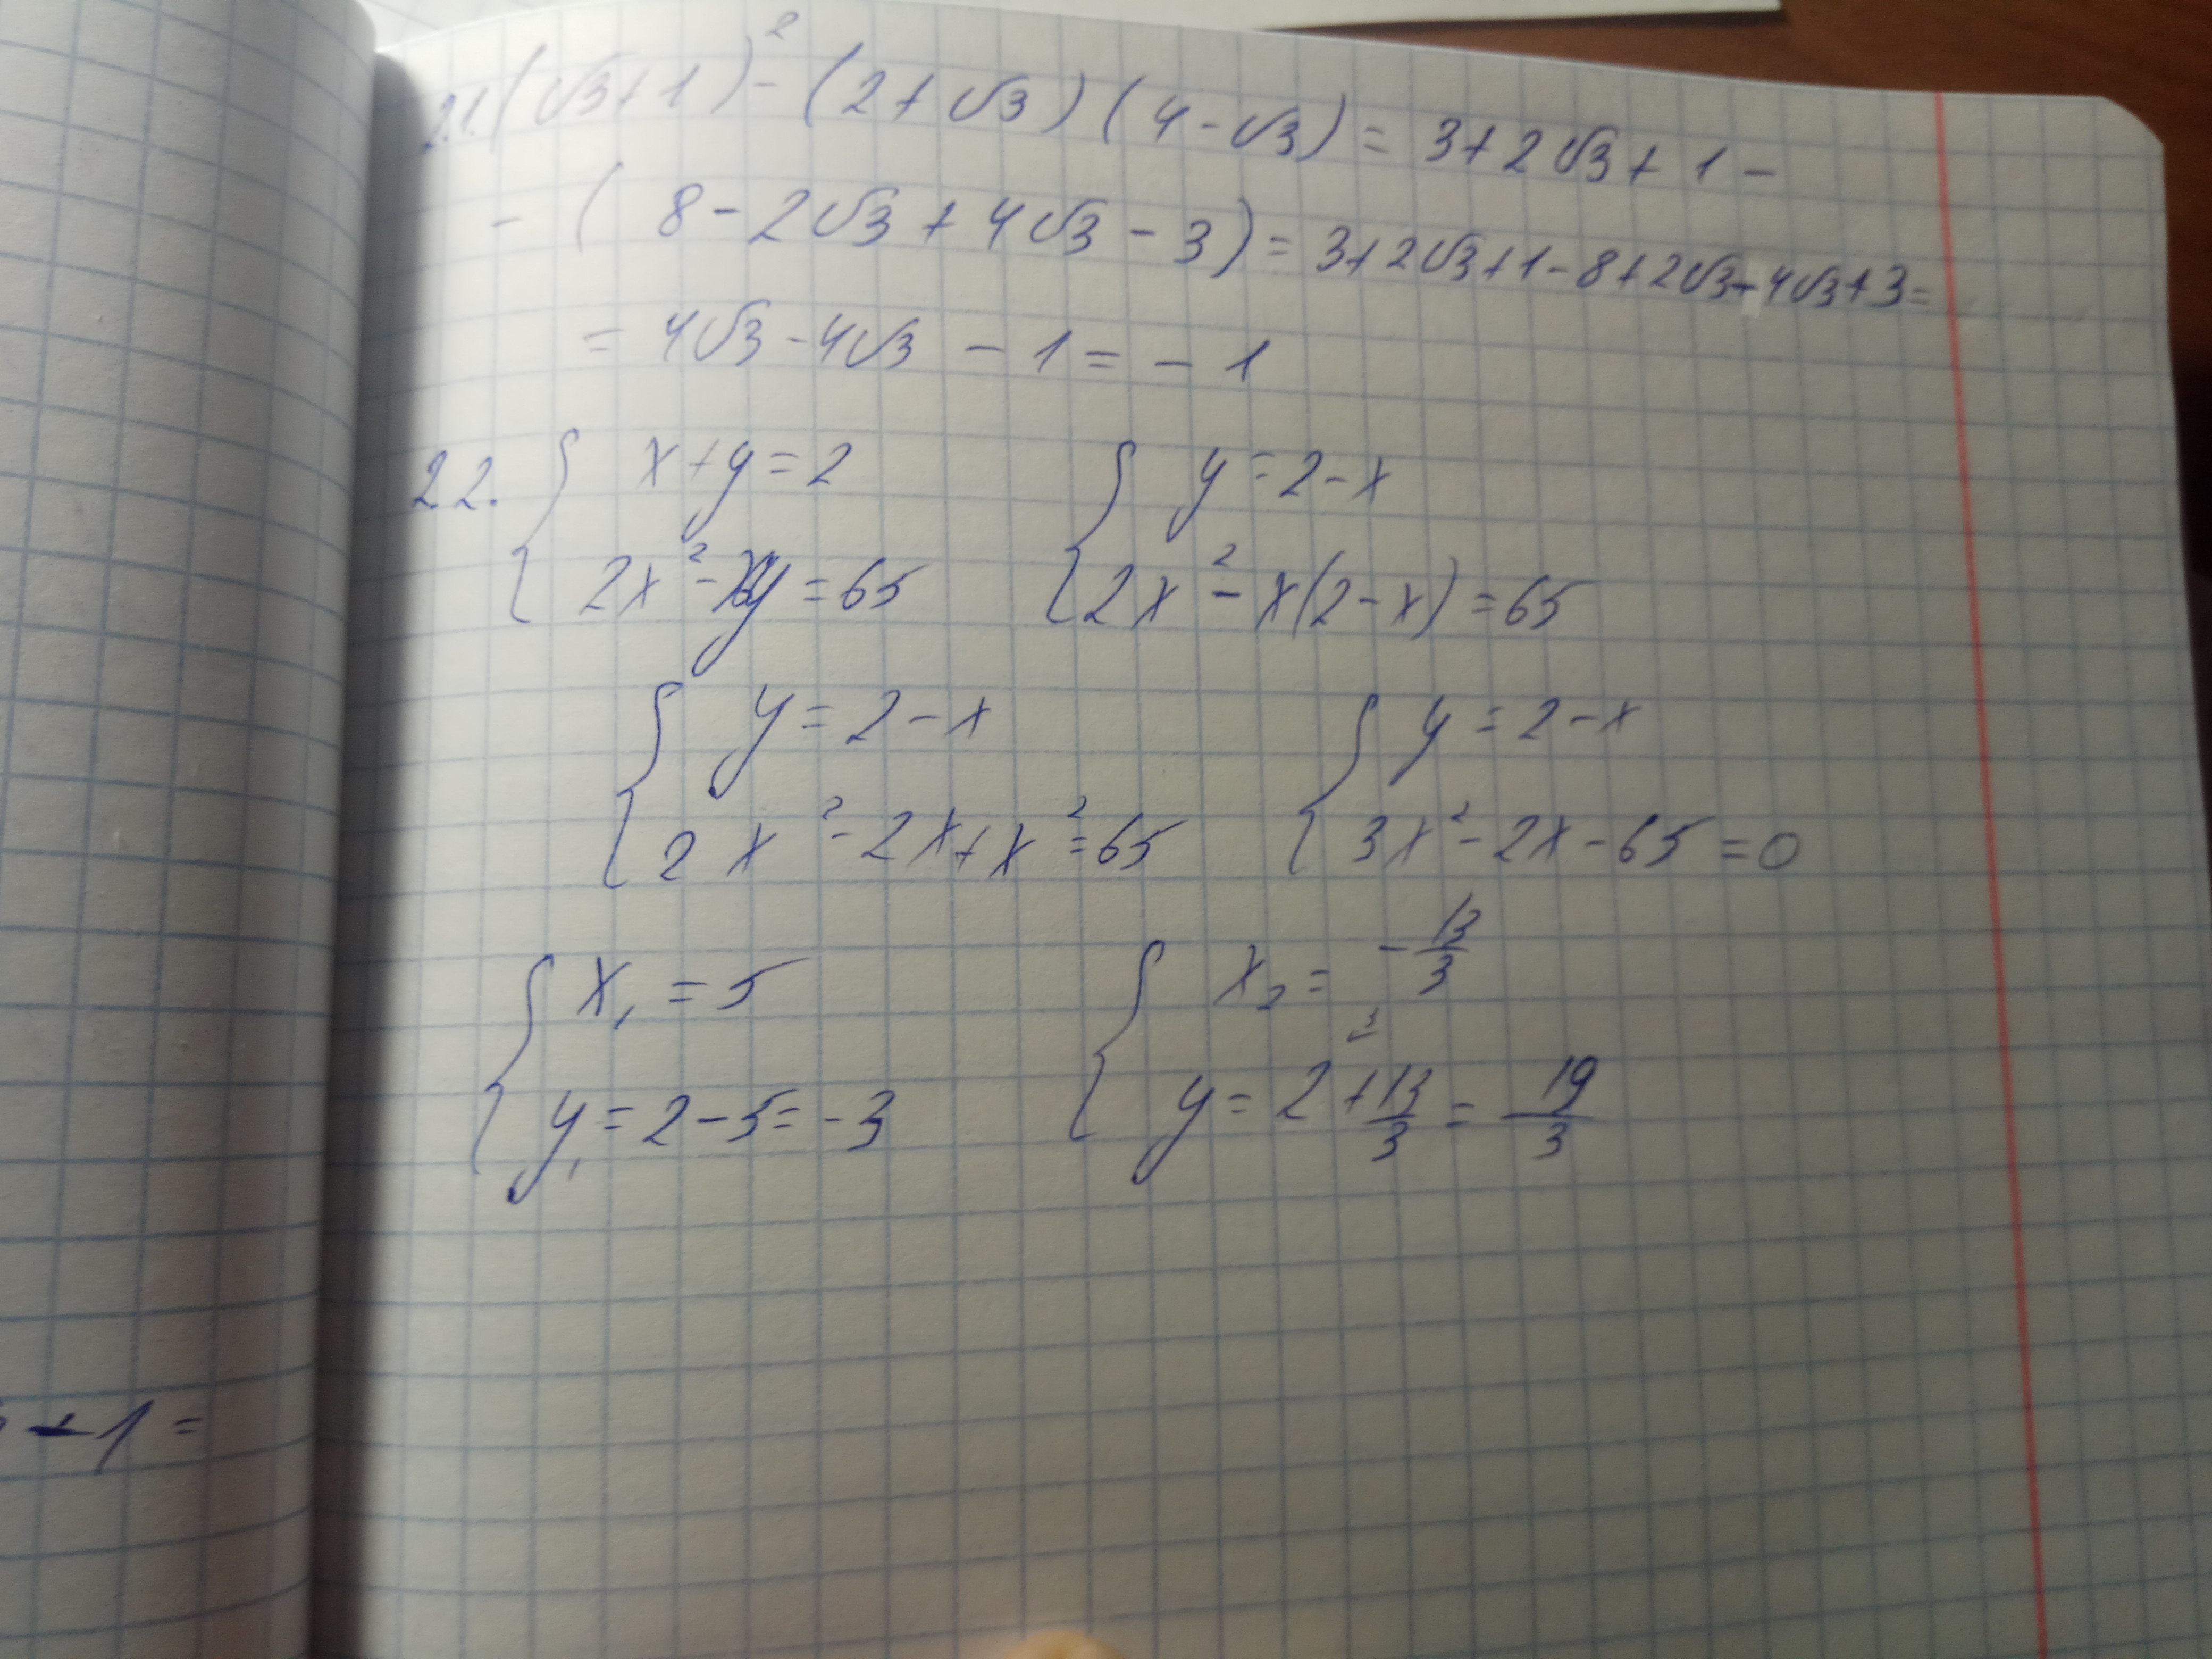 2.1. (√3+1)² - (2+√3)(4-√3) = 3+2√3+1-
- (8-2√3+4√3-3) = 3+2√3+1-8+2√3-4√3+3=
= 4√3-4√3 - 1 = - 1
2.2. { x+y=2 { y=2-x
2x²-xy=65 2x²-x(2-x)=65
{ y=2-x { y=2-x
2x²-2x+x²=65 3x²-2x-65=0
{ x₁=5 { x₂= -13/3
y₁=2-5=-3 y=2+13/3=19/3
+1=